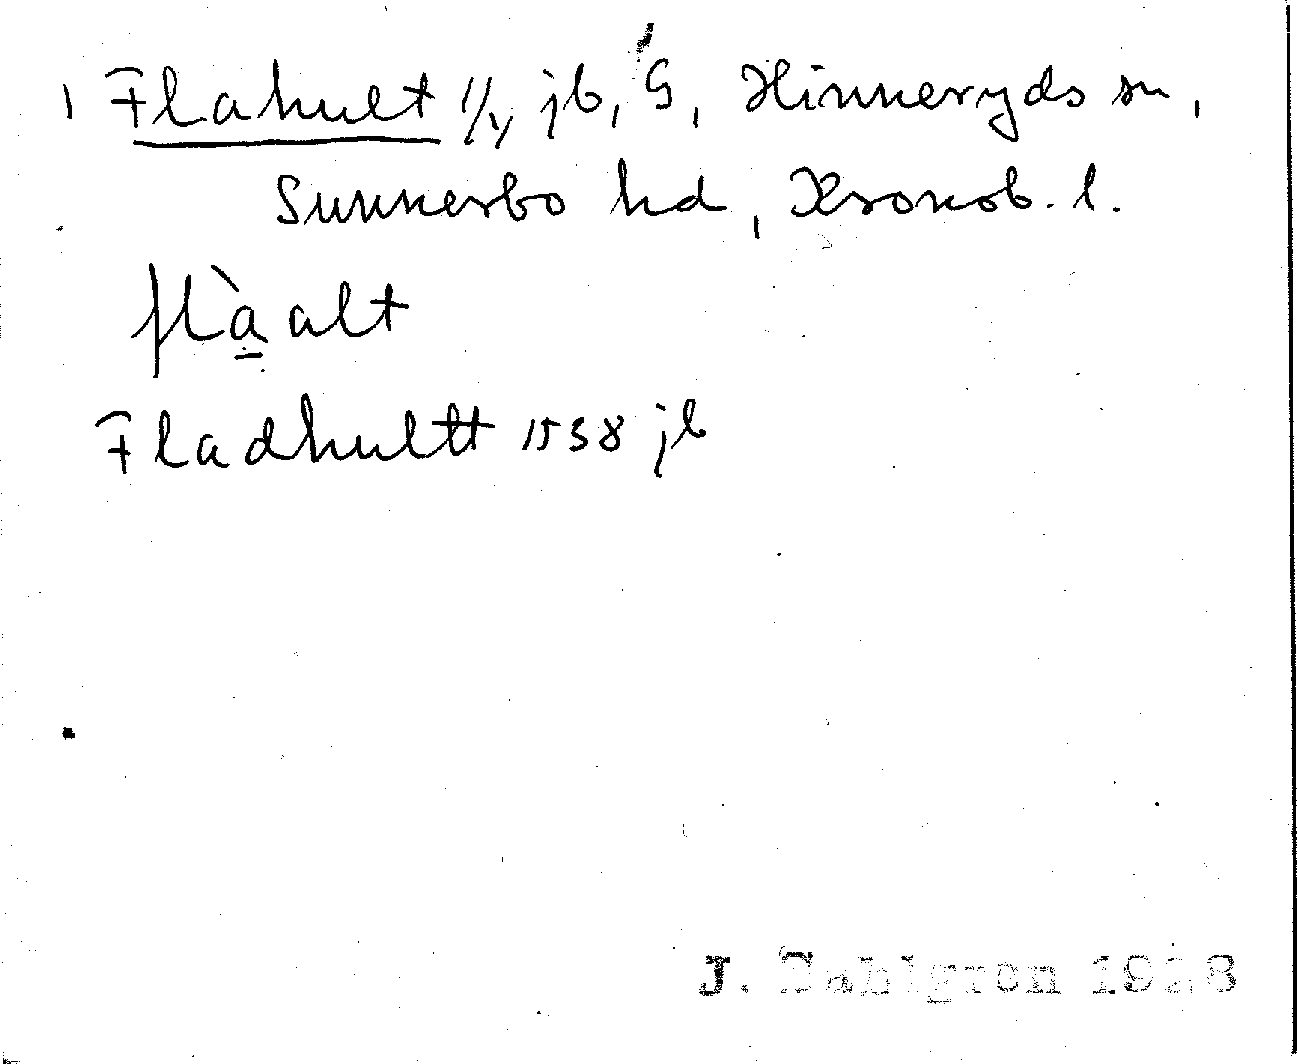 1 Flahult 1/4 jb, G, Hinneryds sn,
Sunnerbo hd, Kronob. l.
flàalt
Fladhultt 1538 jb
J. Dahlgren